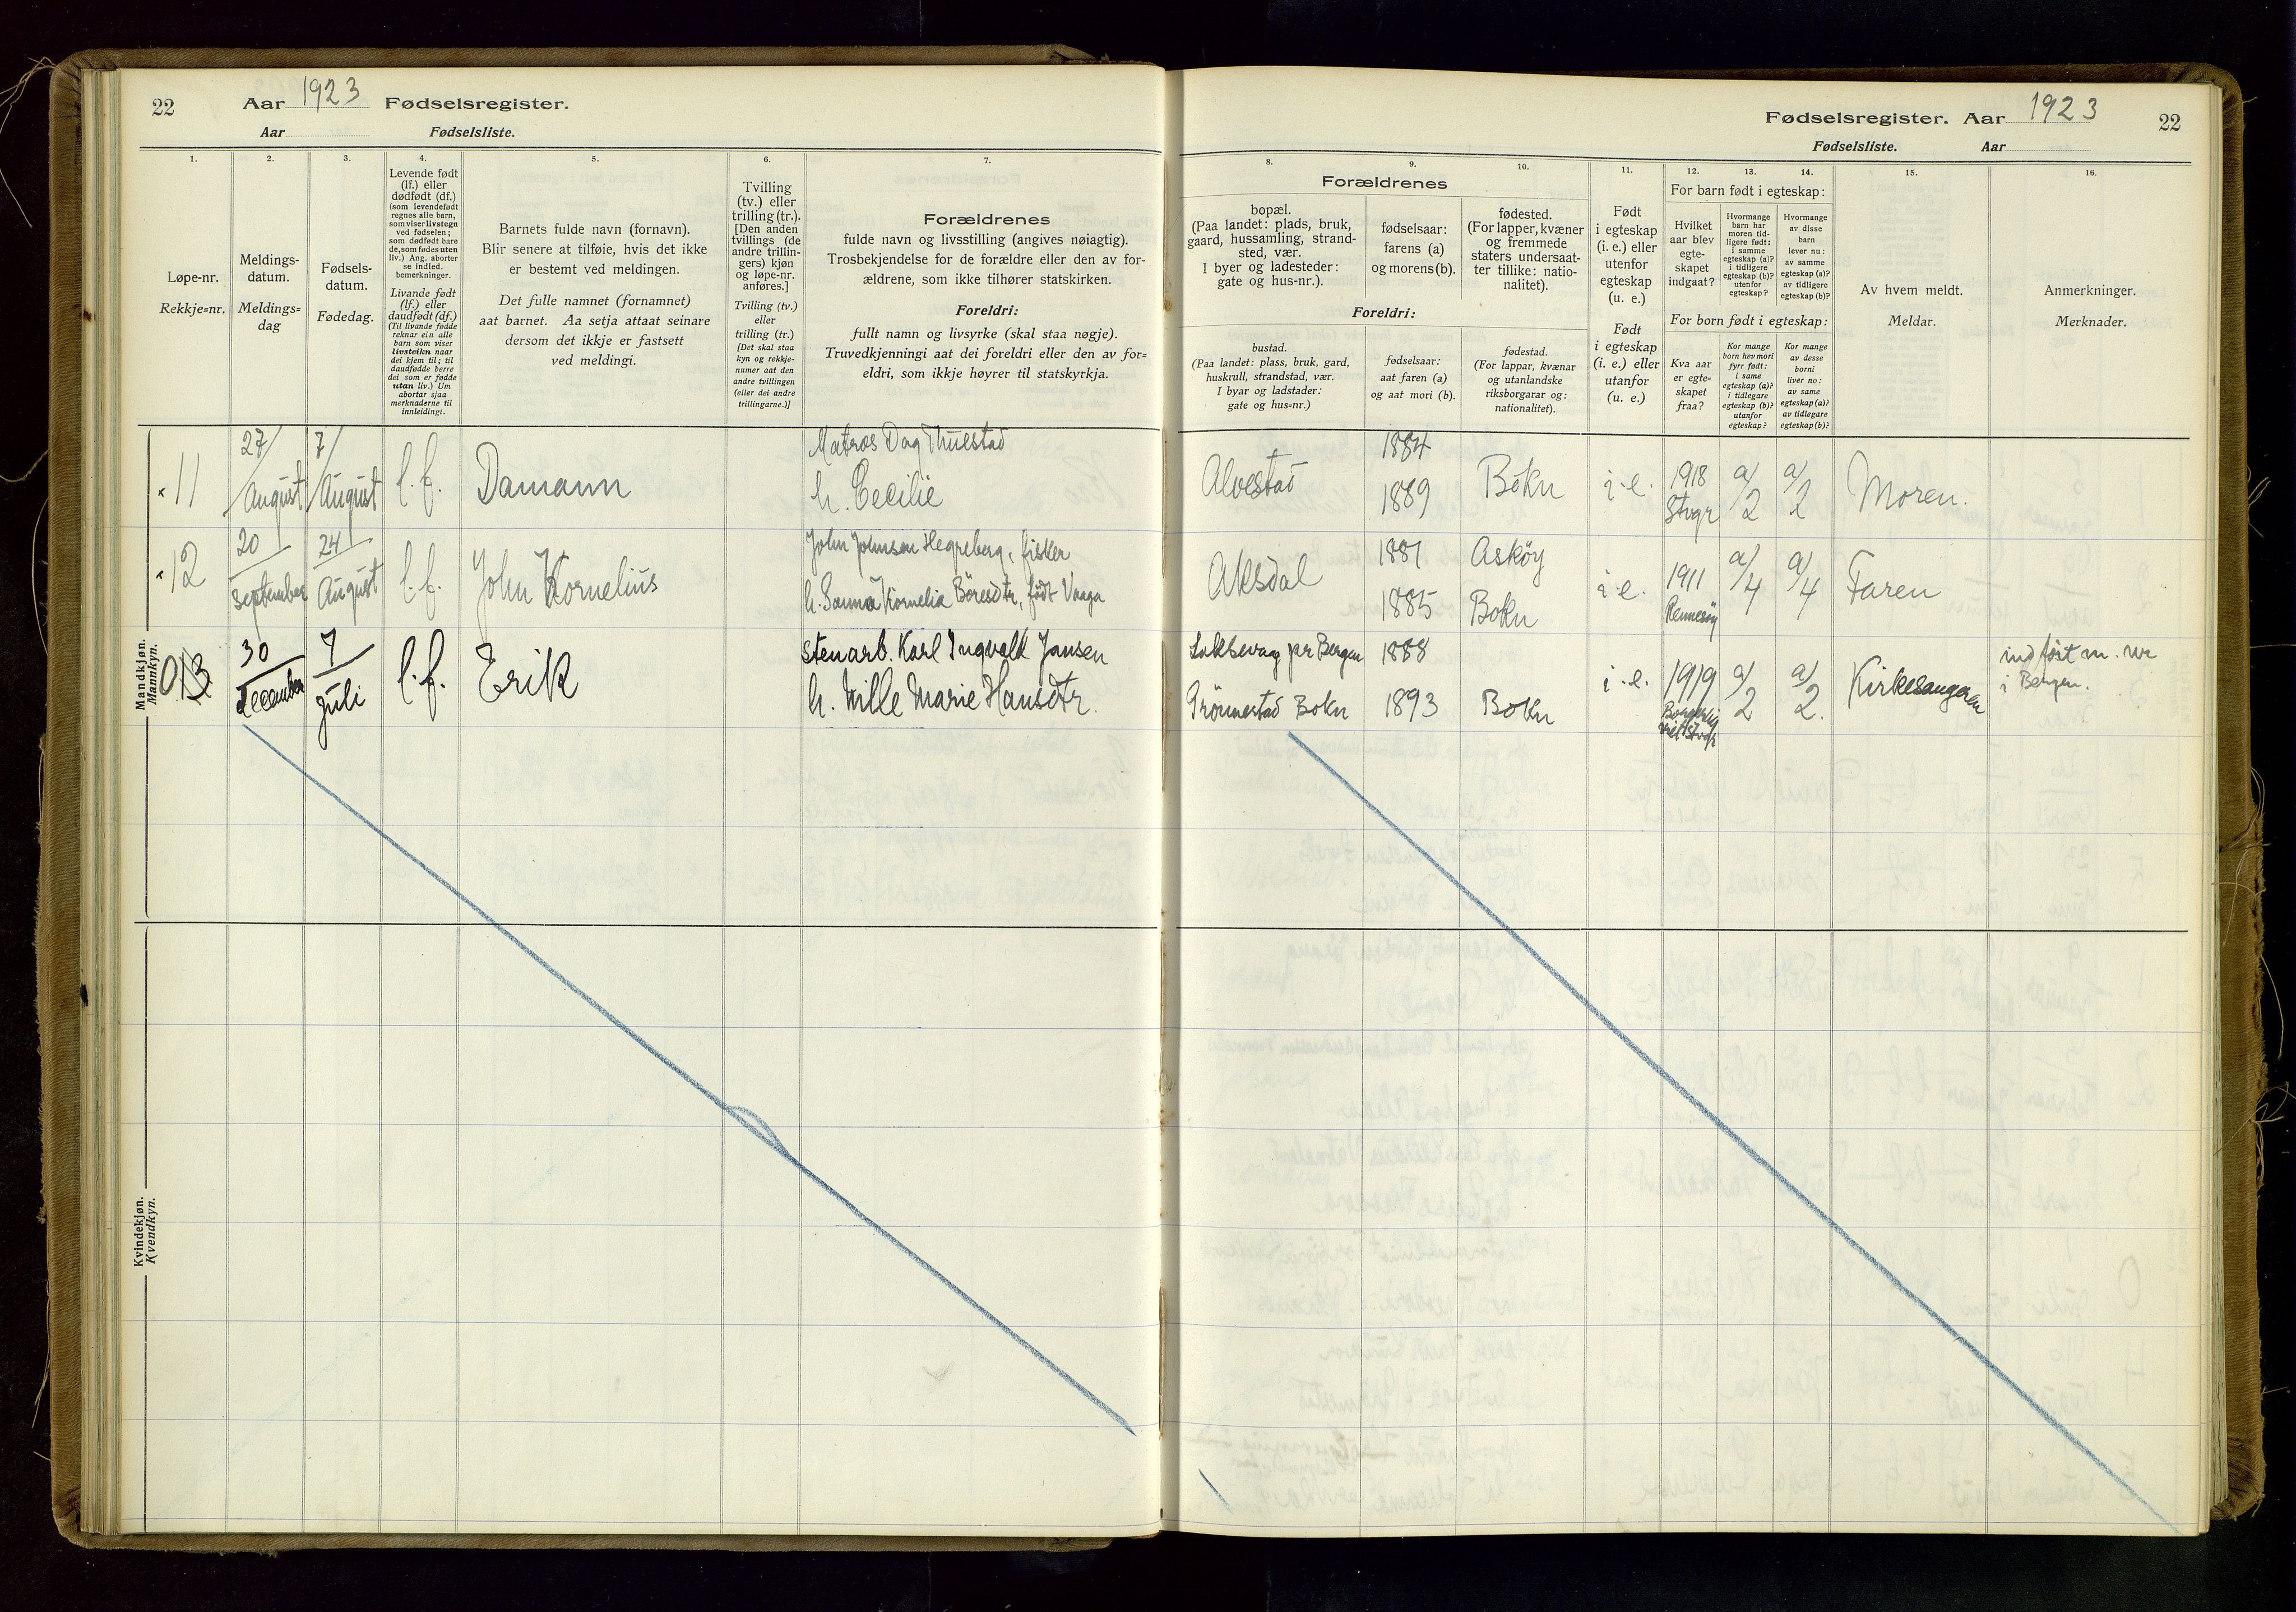 22
Aar 1923 Fødselsregister.
Aar Fødselsliste.
1.
2.
3.
4.
5.
6.
7.
Løpe-nr.
Rekkje-nr.
Meldings-
datum.
Meldings-
dag
Fødsels-
datum.
Fødedag.
Levende født
(lf.) eller
dødfødt (df.)
(som levendefødt
regnes alle barn,
som viser livstegn
ved fødselen;
som dødfødt bare
de, som fødes uten
liv.) Ang. aborter
se indled.
bemerkninger.
Livande født
(lf.) eller
daudfødt (df.)
(Til livande fødde
reknar ein alle
barn som viser
livsteikn naar
dei kjem til; til
daudfødde berre
dei som er fødde
utan liv.) Um
abortar sjaa
merknaderne til
innleidingi.
Barnets fulde navn (fornavn).
Blir senere at tilføie, hvis det ikke
er bestemt ved meldingen.
Det fulle namnet (fornamnet)
aat barnet. Aa setja attaat seinare
dersom det ikkje er fastsett
ved meldingi.
Tvilling
(tv.) eller
trilling (tr.).
[Den anden
tvillings (de
andre trillin-
gers) kjøn
og løpe-nr.
anføres.]
Tvilling (tv.)
eller
trilling (tr.)
[Det skal staa
kyn og rekkje-
numer aat den
andre tvillingen
(eller dei andre
trillingarne.)]
Forældrenes
fulde navn og livsstilling (angives nøiagtig).
Trosbekjendelse for de forældre eller den av for-
ældrene, som ikke tilhører statskirken.
Foreldri:
fullt namn og livsyrke (skal staa nøgje).
Truvedkjenningi aat dei foreldri eller den av for-
eldri, som ikkje høyrer til statskyrkja.
Mandkjøn.
Mannkyn.
11
27/ August
7/ August
l.f.
Damann
Matros Dag Thuestad
h. Cecilie
12
20 September
24 August
l.f.
John Kornelius
John Johnsen Hegreberg, fisker
h. Sanna Kornelia Böresdtr, født Vaaga
013
30 december
7 juli
l.f.
Erik
stenarb. Karl Ingvald Jansen
h. Nille Marie Hansdtr.
Kvindekjøn.
Kvendkyn.
Fødselsregister. Aar 1923
22
Fødselsliste. Aar
8.
9.
10.
11.
12.
13.
14.
15.
16.
Forældrenes
bopæl.
(Paa landet: plads, bruk,
gaard, hussamling, strand-
sted, vær.
I byer og ladesteder:
gate og hus-nr.).
fødselsaar:
farens (a)
og morens (b).
fødested.
(For lapper, kvæner
og fremmede
staters undersaat-
ter tillike: natio-
nalitet).
Foreldri:
bustad.
(Paa landet: plass, bruk, gard,
huskrull, strandstad, vær.
I byar og ladstader:
gate og hus-nr.)
fødselsaar:
aat faren (a)
og aat mori (b).
fødestad.
(For lappar, kvænar
og utanlandske
riksborgarar og:
nationalitet).
Født
i egteskap
(i. e.) eller
utenfor
egteskap
(u. e.)
Født
i egteskap
(i. e.) eller
utanfor
(u. e.)
For barn født i egteskap:
Hvilket
aar blev
egte-
skapet
indgaat?
Hvormange
barn har
moren tid-
ligere født:
i samme
egteskap (a)?
i tidligere
egteskap (b)?
utenfor
egteskap?
Hvormange
av disse
barn
lever nu:
av samme
egteskap (a)?
av tidligere
egteskap (b)?
For born født i egteskap:
Kva aar
er egte-
skapet
fraa?
Kor mange
born hev mori
fyrr født:
i same
egteskap (a)?
i tidlegare
egteskap (b)?
utanfor
egteskap?
Kor mange
av desse
borni
liver no:
av same
egteskap (a)?
av tidlegare
egteskap (b)?
Av hvem meldt.
Meldar.
Anmerkninger.
Merknader.
Alvestad
1884
1889
Bokn
i.e.
1918
Stvgr
a/2
a/2
Moren.
Aksdal
1881
1885
Asköy
Bokn
i.e.
1911
Rennesöy
a/4
a/4
Faren
Laksevaag pr Bergen
Grönnestad Bokn
1888
1893
Bokn
i.e.
1919
Borgerlig
viet Stvgr
a/2
a/2.
Kirkesangeren
indført m. nr
i Bergen.